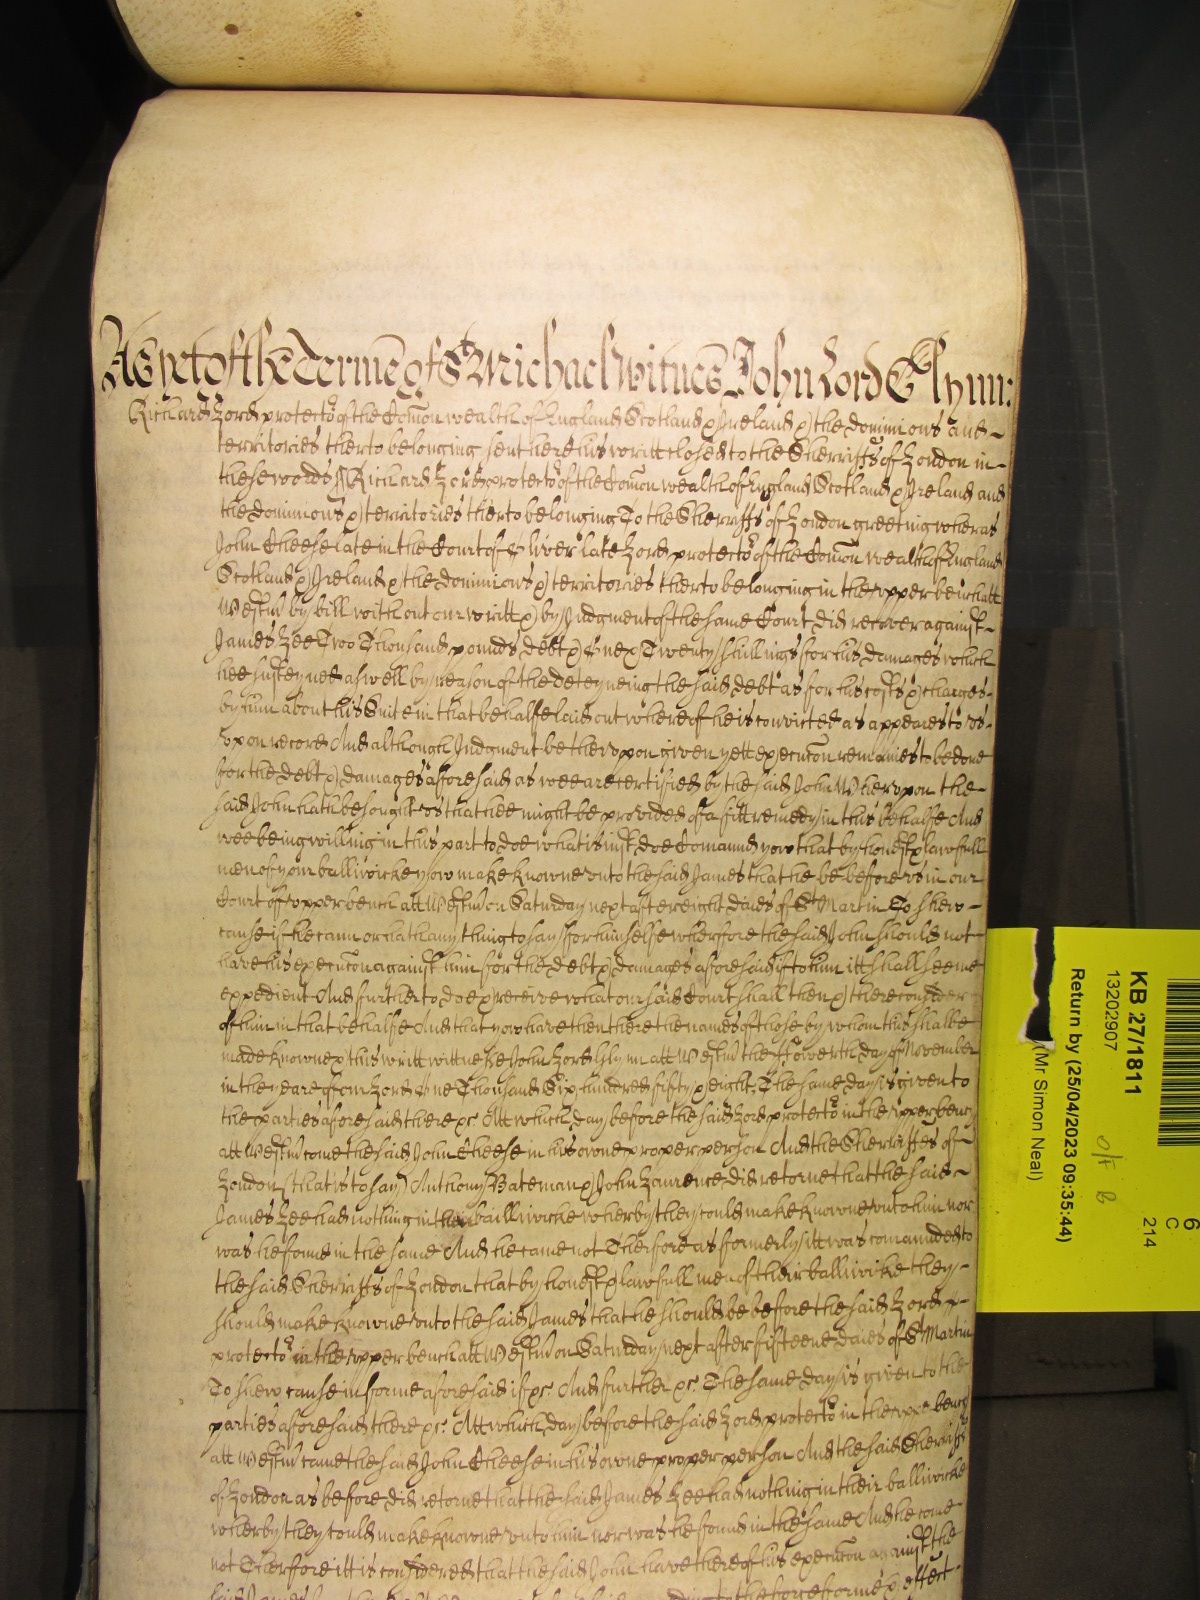 As yet of the Terme of St Michael witnes John Lord Glynn:
Richard Lord protector of the Comon wealth of England Scotland & Ireland & the dominions and
territories therto belonging sent here his writt closed to the Sherriffs of London in
these words ss Richard Lord protector of the Comon wealth of England Scotland & Ireland and
the dominions & territories therto belonging To the Sherriffs of London greeting wheras
John Cheese late in the Court of Oliver late Lord protector of the Comon wealth of England
Scotland & Ireland & the dominions & territories therto belonging in the upper bench att
Westm by bill without our writt & by Judgment of the same Court did recover against
James Lee Two Thousand pounds debt & One & Twenty shillings for his damages which
hee susteyned aswell by reason of the deteyneing the said debt as for his costs & charges
by him about his Suite in that behalfe laid out wherof he is convicted as appeares to us
upon record And although Judgment be therupon given yett execucon remaines to be done
for the debt & damages aforesaid as wee are certified by the said John Wherupon the
said John hath besought us that hee might be provided of a fitt remedy in this behalfe And
wee being willing in this part to doe what is just doe Comannd yow that by honest & lawfull
men of your bailliwicke yow make knowne unto the said James that he be before us in our
Court of upper bench att Westm on Saturday next after eight daies of St Martin To shew
cause if he cann or hath any thing to say for himselfe wherfore the said John should not
have his execucon against him for the debt & damages aforesaid if to him itt shall seeme
expedient And further to doe & receive what our said Court shall then & there consider
of him in that behalfe And that yow have then there the names of those by whom this shalbe
made knowne & this writt wittnes John Lord Glynn att Westm the day of November
in the yeare of our Lord One Thousand Six hundred fifty & eight. The same day is given to
the parties aforesaid there &c. Att which day before the said Lord protector in the upper bench
att Westm come the said John Cheese in his owne proper person And the Sherriffes of
London (that is to say) Anthony Bateman & John Laurence did retorne that the said
James Lee had nothing in their bailliwicke wherby they could make knowne unto him nor
was he found in the same And he came not Therfore as formerly itt was comannded to
the said Sherriffs of London that by honest & lawfull men of their balliwike they
should make knowne unto the said James that he should be before the said Lord
protector in the upper bench att Westm on Saturday next after fifteene daies of St Martin
To shew cause in forme aforesaid if &c. And further &c. The same day is given to the
parties aforesaid there &c. Att which day before the said Lord protector in the upper bench
att Westm came the said John Cheese in his owne proper person And the said Sherriffs
of London as before did retorne that the said James Lee had nothing in their balliwicke
wherby they could make knowne unto him nor was he found in the same And he come
not Therfore itt is considered that the said John have thereof his execucon against the
said James
KB 27/1811
13202907
Return by (25/04/2023 09:35:44)
(Mr Simon Neal)
6
C
214